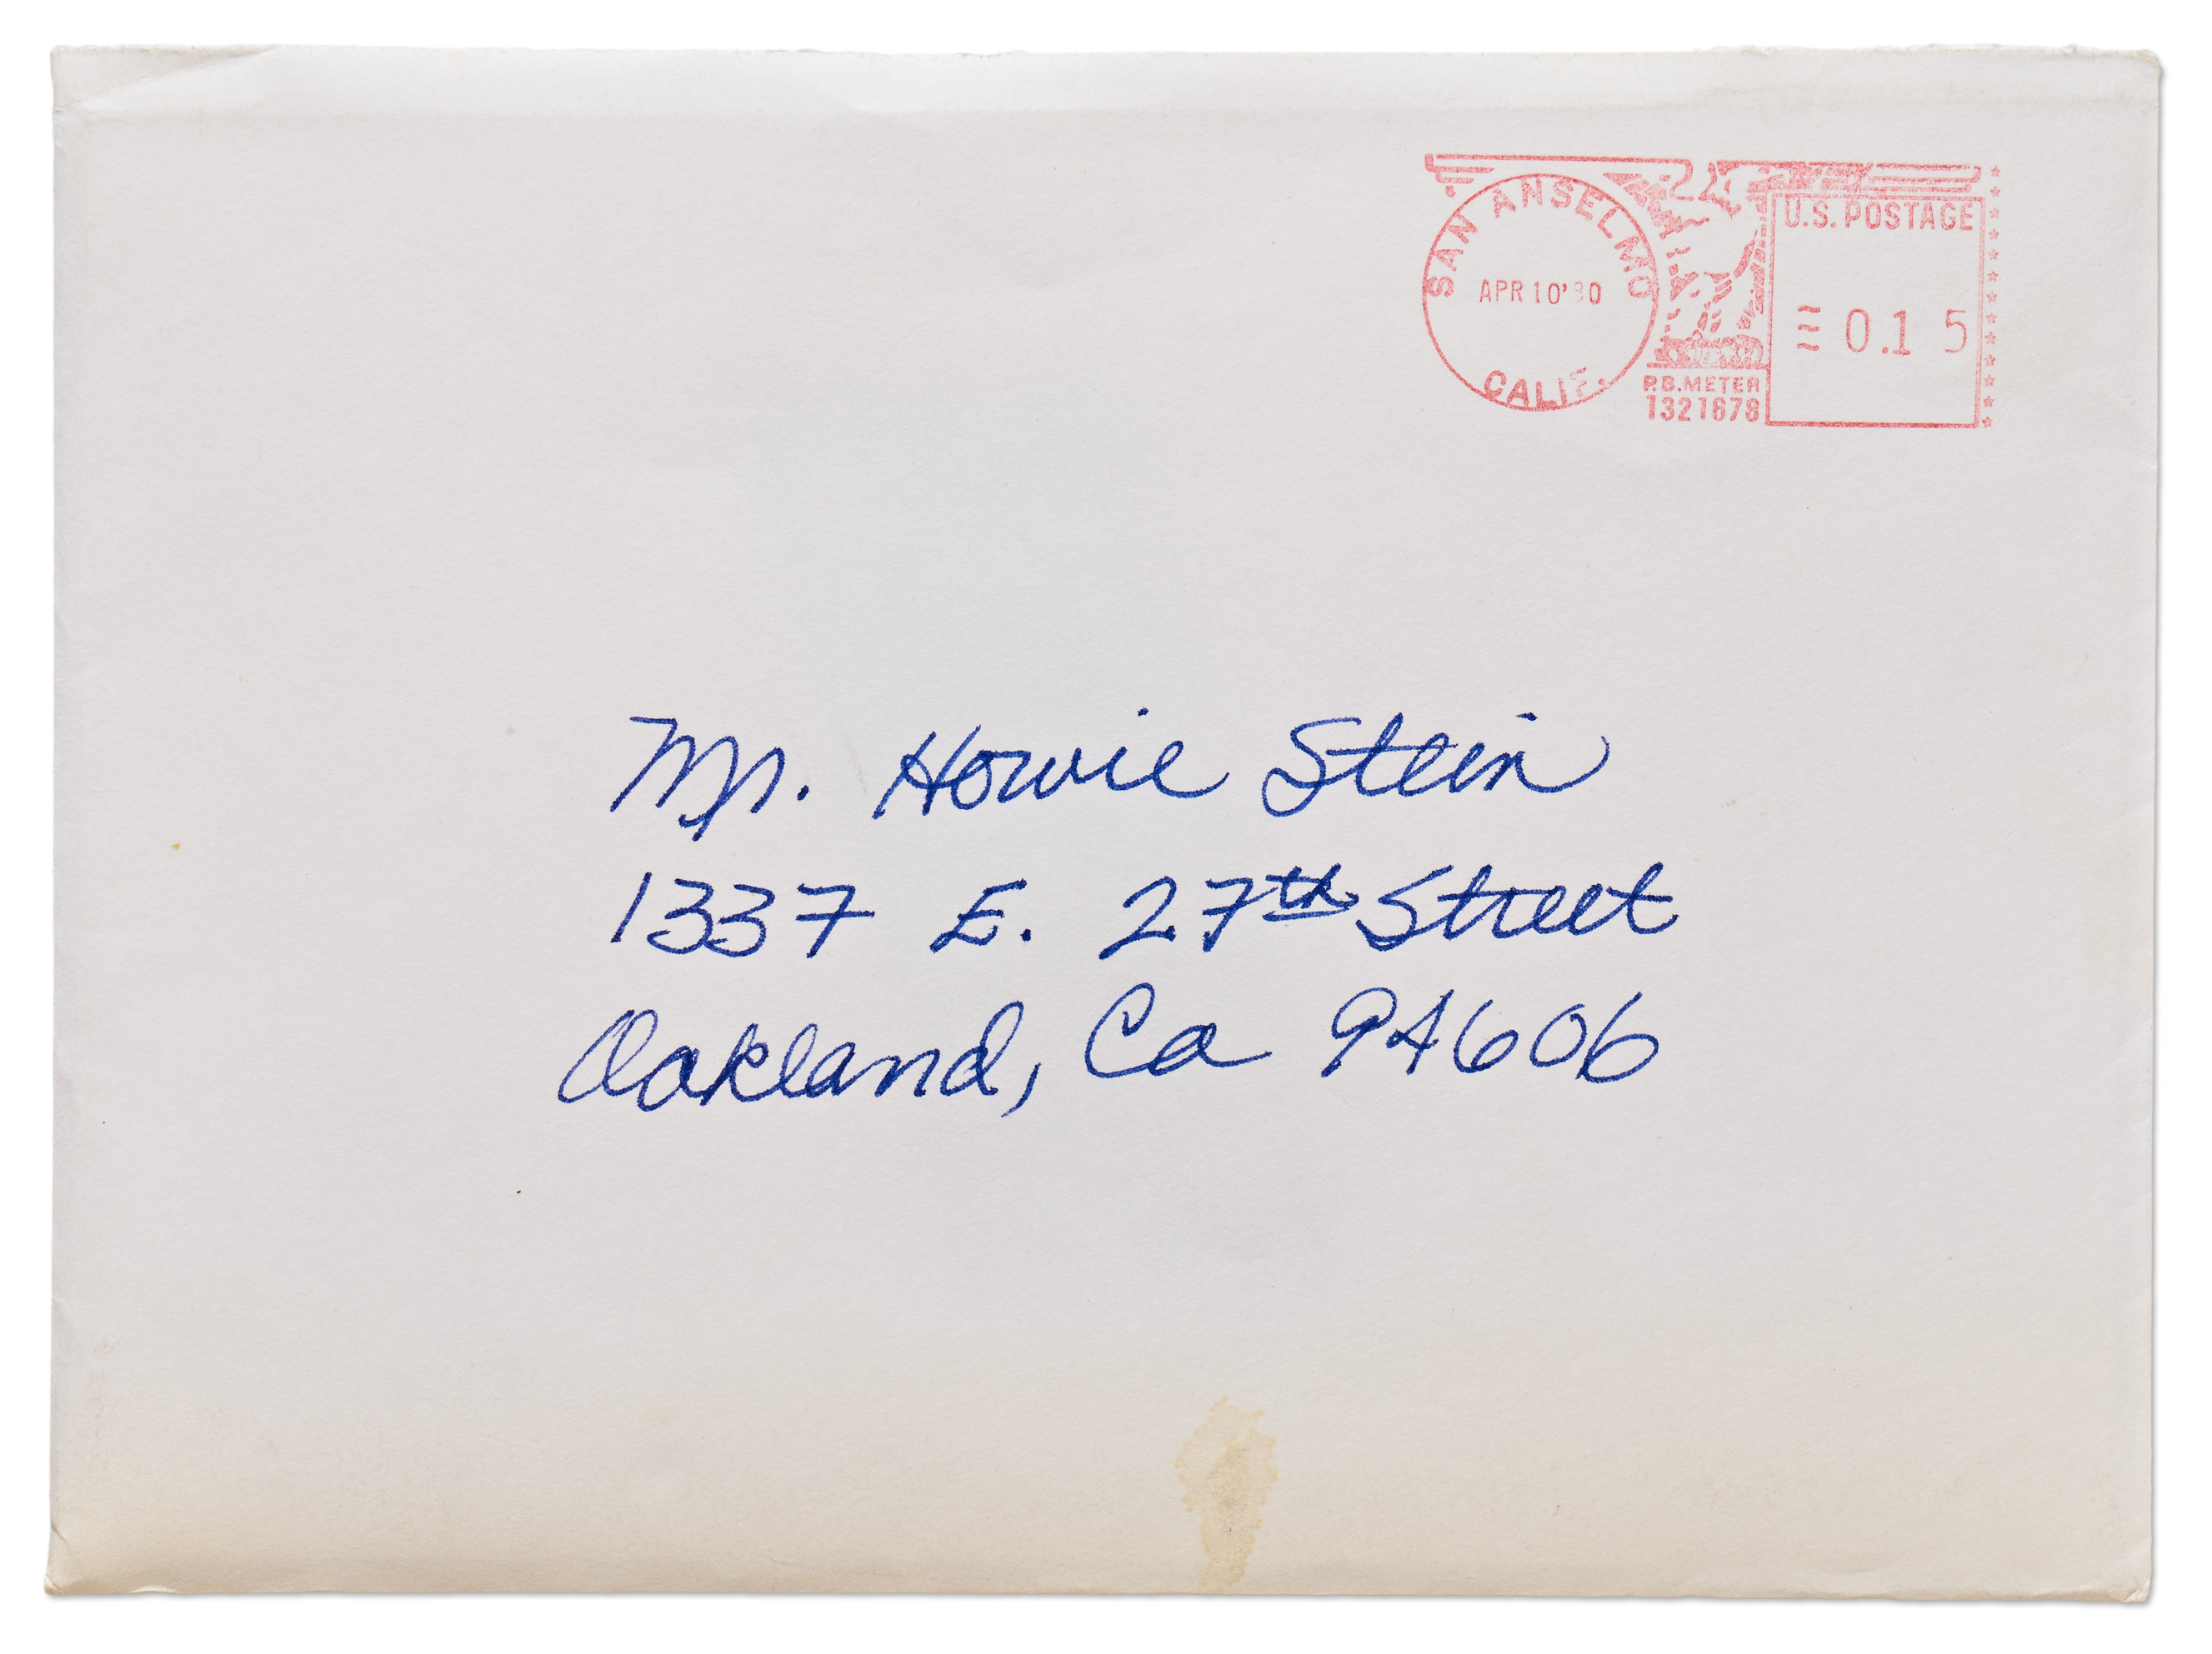 SAN ANSELMO
APR 10 '80
CALIF.
P.B. METER
1321678
U.S. POSTAGE
0.1 5
Mr. Howie Stein
1337 E. 27th Street
Oakland, Ca 94606